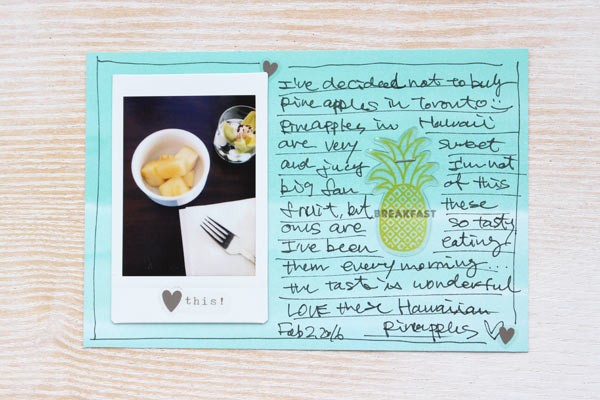 I've decided not to buy
pineapples in Toronto..
Pineapples in Hawaii
are very sweet
and juicy I'm not
big fan of this
fruit, but these
ones are so tasty
I've been eating
them every morning...
the taste is wonderful
LOVE these Hawaiian
Feb 2, 2016 pineapples
BREAKFAST
this!